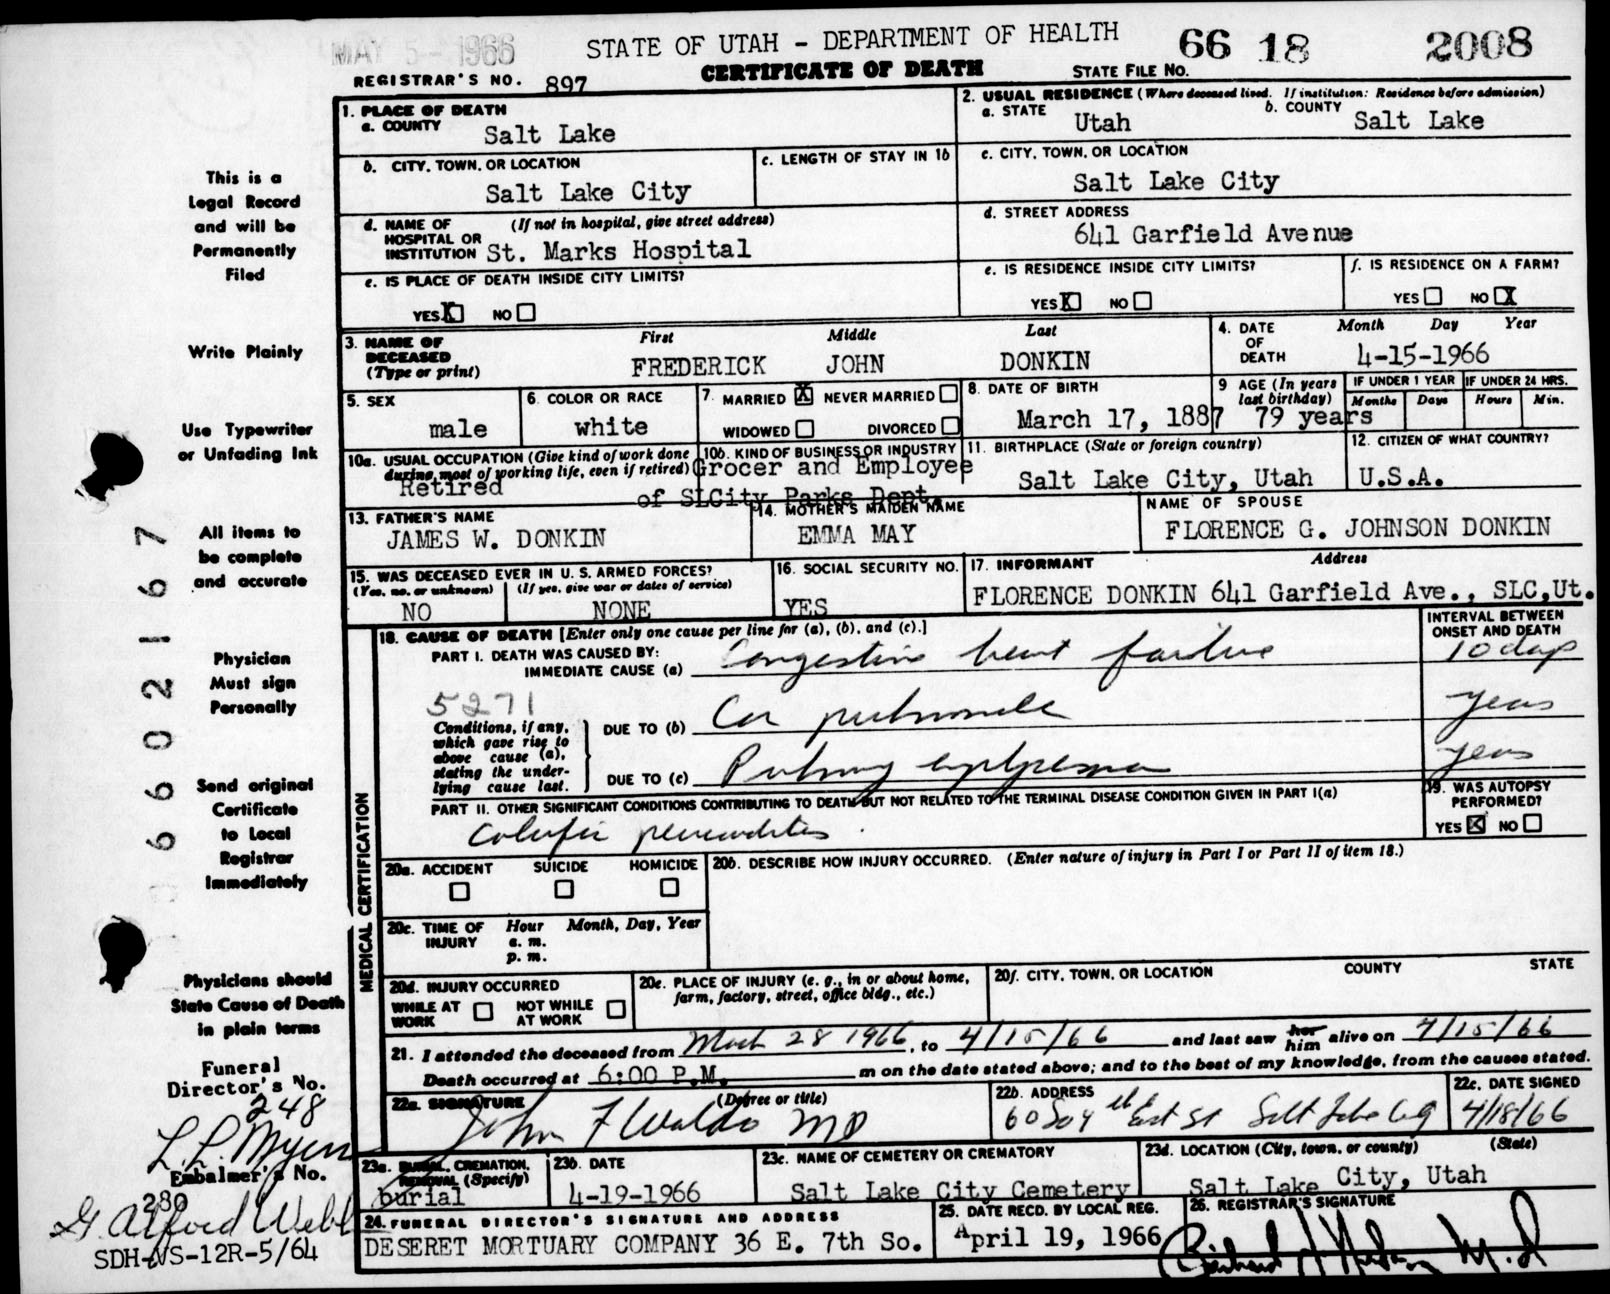 MAY 5 - 1966
STATE OF UTAH - DEPARTMENT OF HEALTH
66 18 2008
CERTIFICATE OF DEATH
STATE FILE NO.
REGISTRAR'S NO. 897
1. PLACE OF DEATH
a. COUNTY Salt Lake
2. USUAL RESIDENCE (Where deceased lived. If institution: Residence before admission)
a. STATE Utah b. COUNTY Salt Lake
b. CITY, TOWN, OR LOCATION Salt Lake City
c. LENGTH OF STAY IN 1b
c. CITY, TOWN, OR LOCATION Salt Lake City
d. NAME OF HOSPITAL OR INSTITUTION (If not in hospital, give street address) St. Marks Hospital
d. STREET ADDRESS 641 Garfield Avenue
e. IS PLACE OF DEATH INSIDE CITY LIMITS?
YES X NO
e. IS RESIDENCE INSIDE CITY LIMITS?
YES X NO
f. IS RESIDENCE ON A FARM?
YES NO X
3. NAME OF DECEASED (Type or print)
First Middle Last
FREDERICK JOHN DONKIN
4. DATE OF DEATH Month Day Year
4-15-1966
5. SEX male
6. COLOR OR RACE white
7. MARRIED X NEVER MARRIED
WIDOWED DIVORCED
8. DATE OF BIRTH March 17, 1887
9 AGE (In years last birthday) 79 years
IF UNDER 1 YEAR Months Days
IF UNDER 24 HRS. Hours Min.
10a. USUAL OCCUPATION (Give kind of work done during most of working life, even if retired) Retired
10b. KIND OF BUSINESS OR INDUSTRY
Grocer and Employee
of SLCity Parks Dept.
11. BIRTHPLACE (State or foreign country) Salt Lake City, Utah
12. CITIZEN OF WHAT COUNTRY? U.S.A.
13. FATHER'S NAME JAMES W. DONKIN
14. MOTHER'S MAIDEN NAME EMMA MAY
NAME OF SPOUSE FLORENCE G. JOHNSON DONKIN
15. WAS DECEASED EVER IN U. S. ARMED FORCES?
(Yes, no, or unknown) (If yes, give war or dates of service)
NO NONE
16. SOCIAL SECURITY NO. YES
17. INFORMANT Address
FLORENCE DONKIN 641 Garfield Ave., SLC,Ut.
MEDICAL CERTIFICATION
18. CAUSE OF DEATH [Enter only one cause per line for (a), (b), and (c).]
INTERVAL BETWEEN ONSET AND DEATH
PART I. DEATH WAS CAUSED BY:
IMMEDIATE CAUSE (a) Congestive heart failure 10 days
5271
Conditions, if any, which gave rise to above cause (a), stating the underlying cause last.
DUE TO (b) Cor pulmonale years
DUE TO (c) Pulmonary emphysema years
PART II. OTHER SIGNIFICANT CONDITIONS CONTRIBUTING TO DEATH BUT NOT RELATED TO THE TERMINAL DISEASE CONDITION GIVEN IN PART I(a)
19. WAS AUTOPSY PERFORMED?
YES X NO
20a. ACCIDENT SUICIDE HOMICIDE
20b. DESCRIBE HOW INJURY OCCURRED. (Enter nature of injury in Part I or Part II of item 18.)
20c. TIME OF INJURY Hour Month, Day, Year
a. m.
p. m.
20d. INJURY OCCURRED
WHILE AT WORK NOT WHILE AT WORK
20e. PLACE OF INJURY (e. g., in or about home, farm, factory, street, office bldg., etc.)
20f. CITY, TOWN, OR LOCATION COUNTY STATE
21. I attended the deceased from March 28 1966, to 4/15/66 and last saw her him alive on 4/15/66
Death occurred at 6:00 P.M. m on the date stated above; and to the best of my knowledge, from the causes stated.
22a. SIGNATURE (Degree or title)
John F Waldo MD
22b. ADDRESS
East St Salt Lake City
22c. DATE SIGNED
4/18/66
23a. BURIAL, CREMATION, REMOVAL (Specify) burial
23b. DATE 4-19-1966
23c. NAME OF CEMETERY OR CREMATORY Salt Lake City Cemetery
23d. LOCATION (City, town, or county) (State)
Salt Lake City, Utah
24. FUNERAL DIRECTOR'S SIGNATURE AND ADDRESS
DESERET MORTUARY COMPANY 36 E. 7th So.
25. DATE RECD. BY LOCAL REG.
April 19, 1966
26. REGISTRAR'S SIGNATURE
M.D
This is a
Legal Record
and will be
Permanently
Filed
Write Plainly
Use Typewriter
or Unfading Ink
All items to
be complete
and accurate
Physician
Must sign
Personally
Send original
Certificate
to Local
Registrar
Immediately
Physicians should
State Cause of Death
in plain terms
6602167
Funeral
Director's No.
248
L. L. Myers
Embalmer's No.
280
G. Alford Webb
SDH-VS-12R-5/64